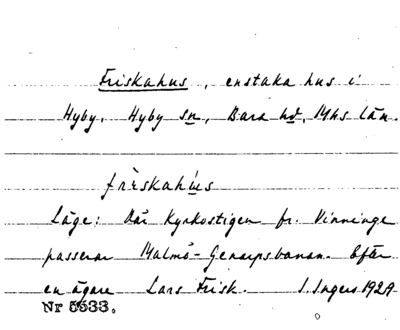 Friskahus, enstaka hus i
Hyby, Hyby sn, Bara hd, Mhs län.
friskahús
Läge: Där Kyrkostigen fr. Vinninge
passerar Malmö-Genarpsbanan. Efter
en ägare Lars Frisk. I. Ingers 1929
Nr 5533.